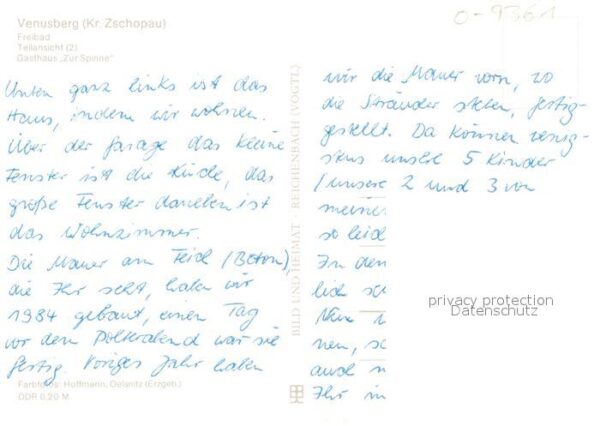 Venusberg (Kr. Zschopau)
Freibad
Teilansicht (2)
Gasthaus „Zur Spinne"
Unten ganz links ist das
Haus, indem wir wohnen.
Über der Garage das kleine
Fenster ist die Küche, das
große Fenster daneben ist
das Wohnzimmer.
Die Mauer am Teich (Beton),
die Ihr seht, haben wir
1984 gebaut, einen Tag
vor dem Polterabend war sie
fertig. Voriges Jahr haben
Farbfotos: Hoffmann, Oelsnitz (Erzgeb.)
DDR 0,20 M
BILD UND HEIMAT · REICHENBACH (VOGTL)
0-9361
wir die Mauer vorn, wo
die Sträucher stehen, fertig-
gestellt. Da können wenig-
stens unsere 5 Kinder
(unsere 2 und 3 von
meine
so leid
In den
lich sc
nen, sc
auch n
Ihr in
privacy protection
Datenschutz